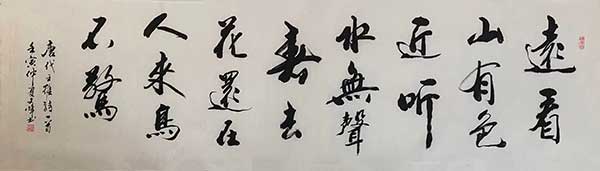 遠看
山有色
近听
水無聲
春去
花還在
人來鳥
不驚
唐代王維詩一首
壬寅仲夏